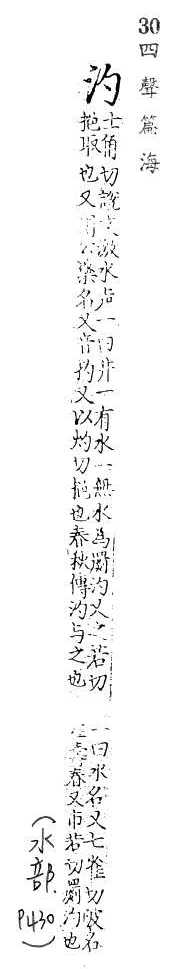 30 四聲篇海
汋
士角切說文激水声一曰井一有水一無水為瀱汋又之若切
挹取也又 樂名又音酌又以灼切挹也春秋傳汋与之也
一曰水名又七雀切陂名
壽春又市若切瀱汋也
(水部 P430)